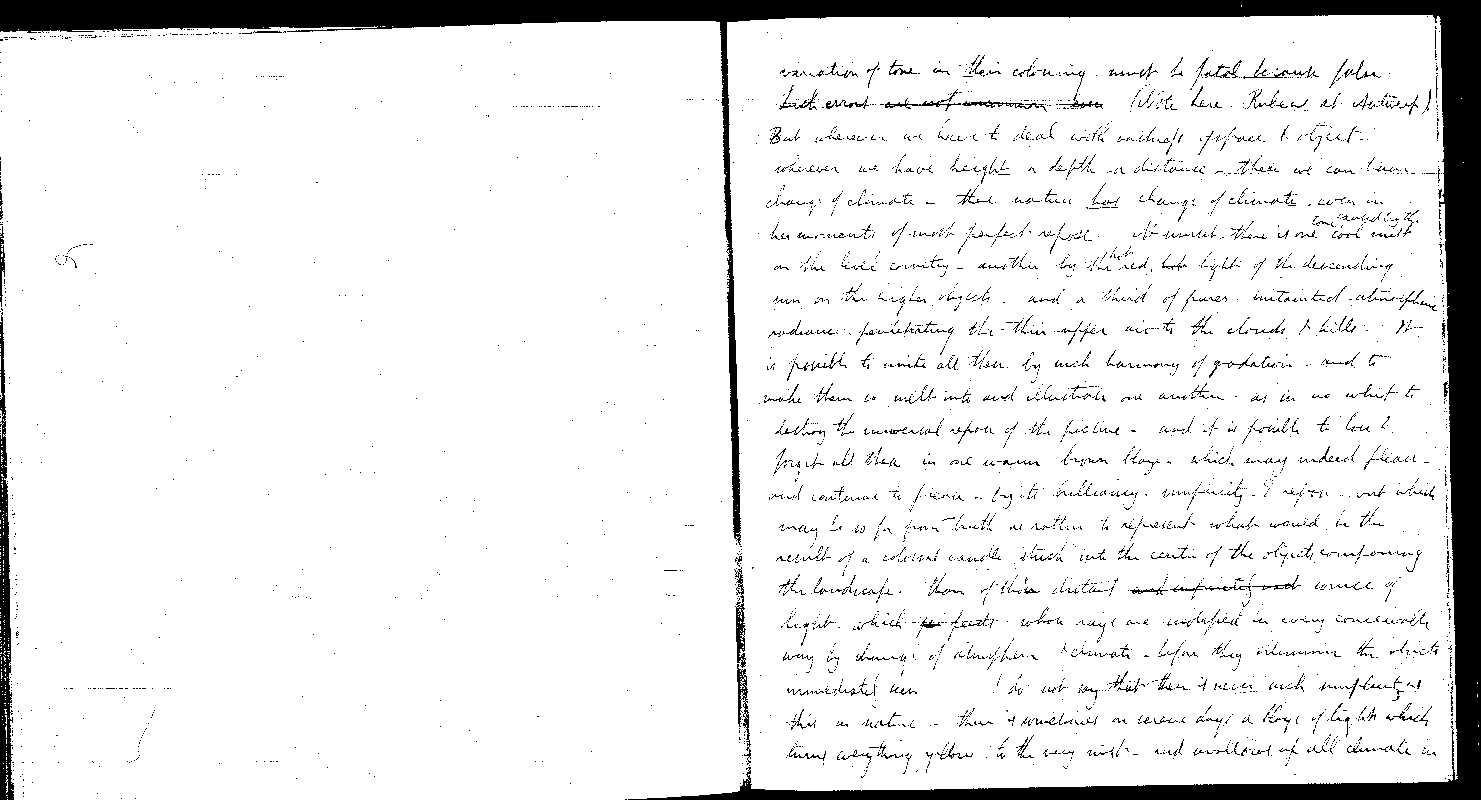 variation of tone in their colouring must be fatal because false
Such errors are not uncommon even (Note here. Rubens at Antwerp)
But wherever we have to deal with vastness of space & object
wherever we have height or depth or distance – there we can have
change of climate – there nature has change of climate, even in
her moments of most perfect repose. At sunset there is one caused by the cool mist
on the level country – another by the hot red light of the descending
sun on the higher objects – and a third of purer untainted atmospheric
radiance penetrating the thin upper air to the clouds & hills. It
is possible to unite all these by such harmony of gradation – and to
make them so melt into and illustrate one another – as in no whit to
destroy the universal repose of the picture – and it is possible to lose &
forget all these in one warm brown blaze – which may indeed please –
and continue to please – by its brilliancy simplicity & repose – but which
may be so far from truth as rather to represent what would be the
result of a colossal candle stuck into the centre of the objects composing
the landscape. than of those distant and infinitely vast source of
light which feeds whose rays are modified in every conceivable
way by change of atmosphere & climate – before they illumine the objects
immediately seen I do not say that there is never such simplicity as
this in nature – there is sometimes on serene days a blaze of light which
turns everything yellow to the very mist – and swallows up all climate in